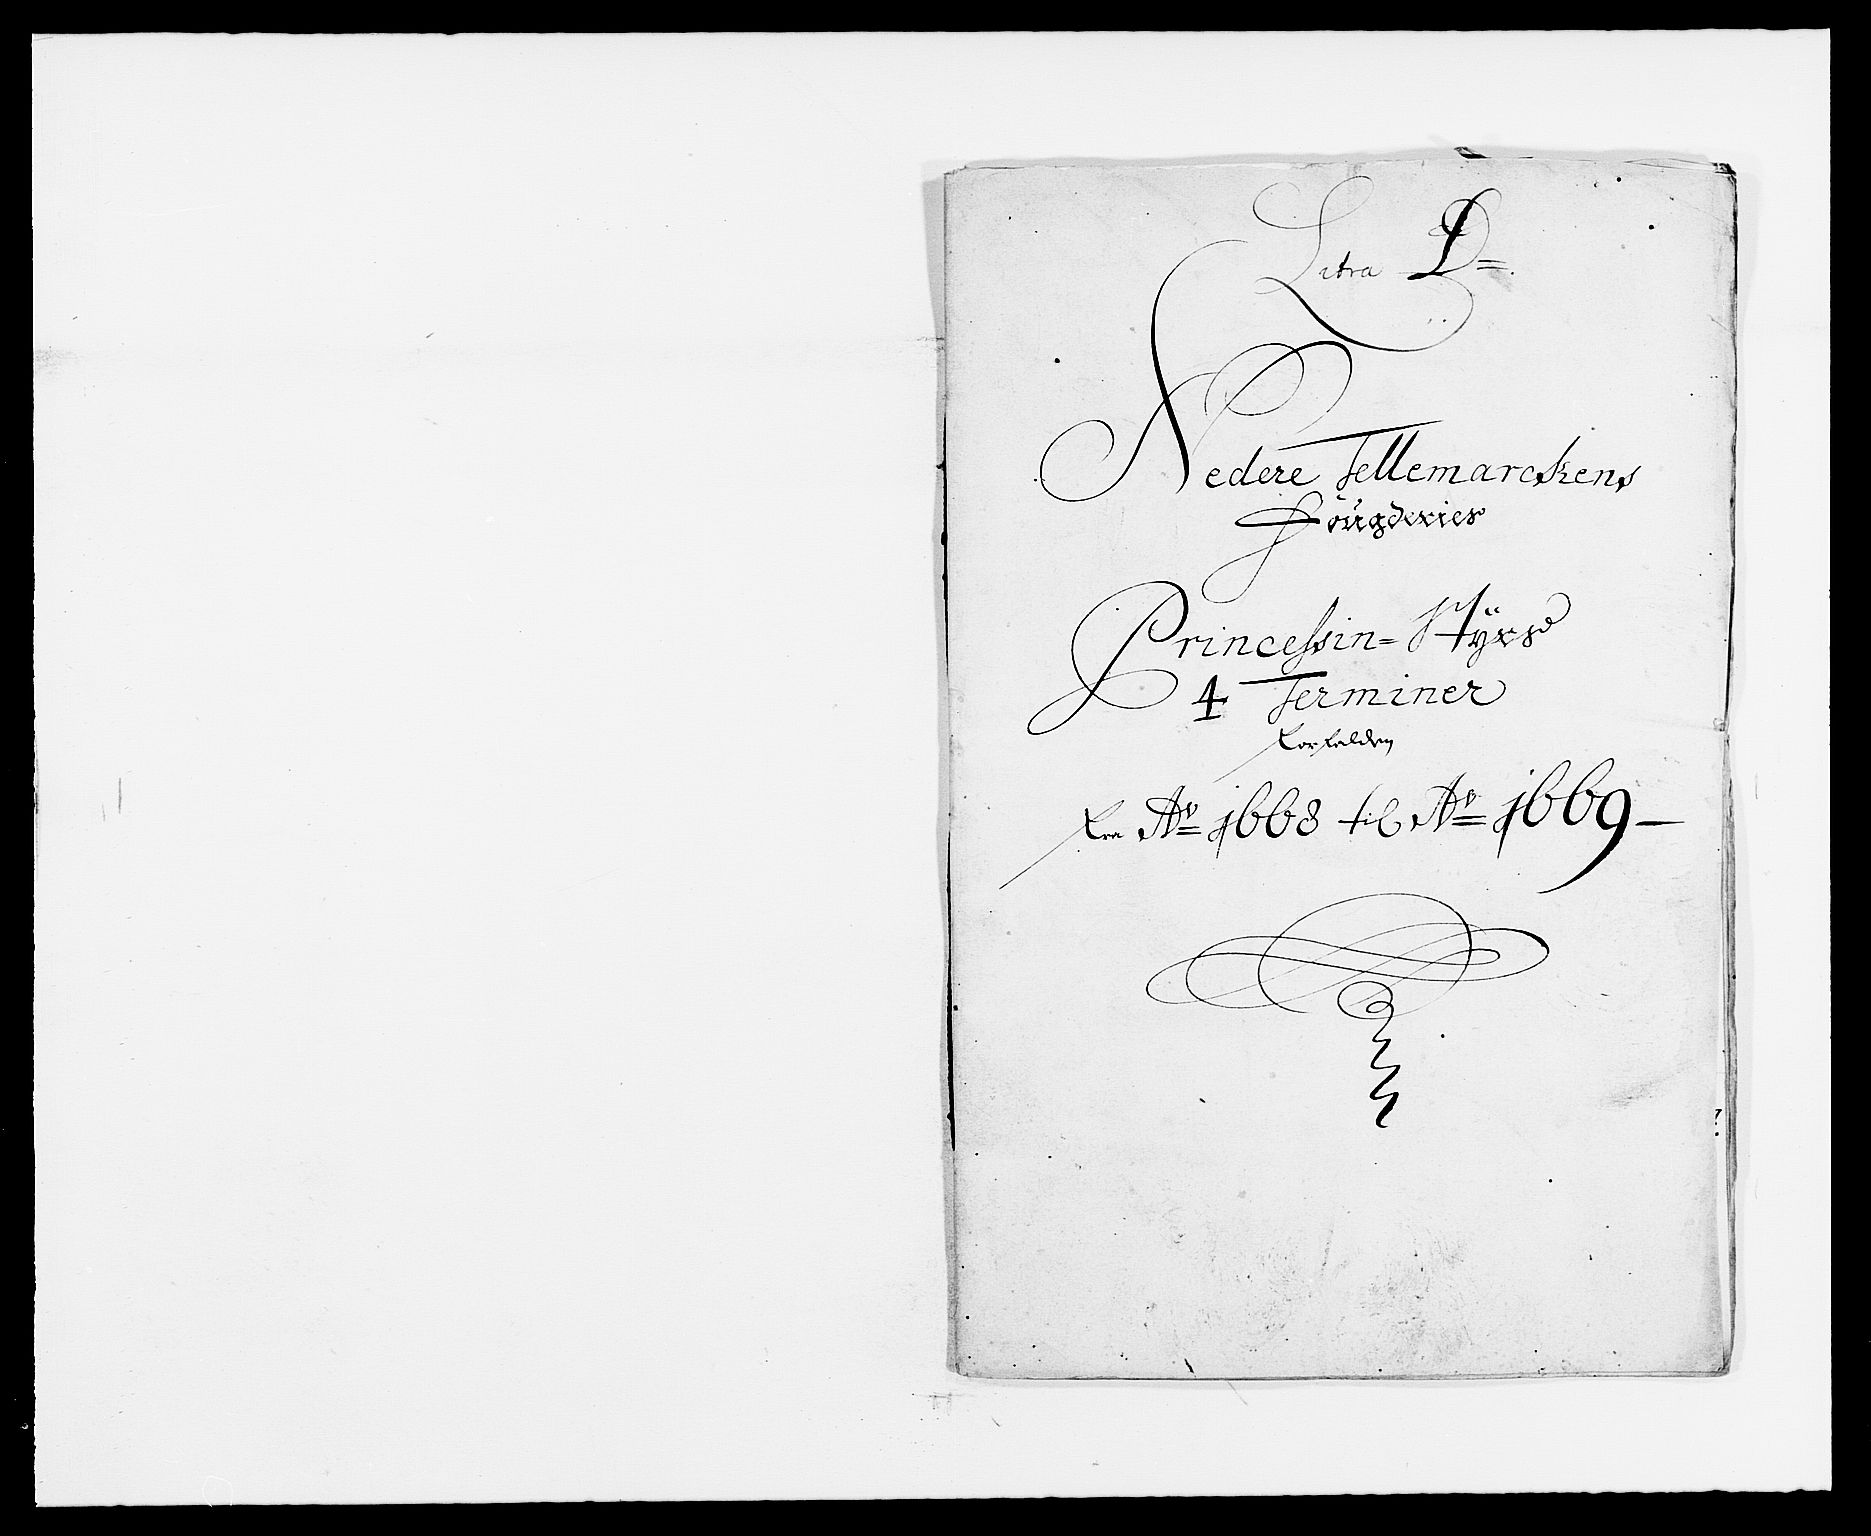 Litra D=.
Nedere Tellemarckens
Fougderies
Princessin= Styrs
4 Terminer
forfalden
fra Aº 1668 til Aº 1669 —